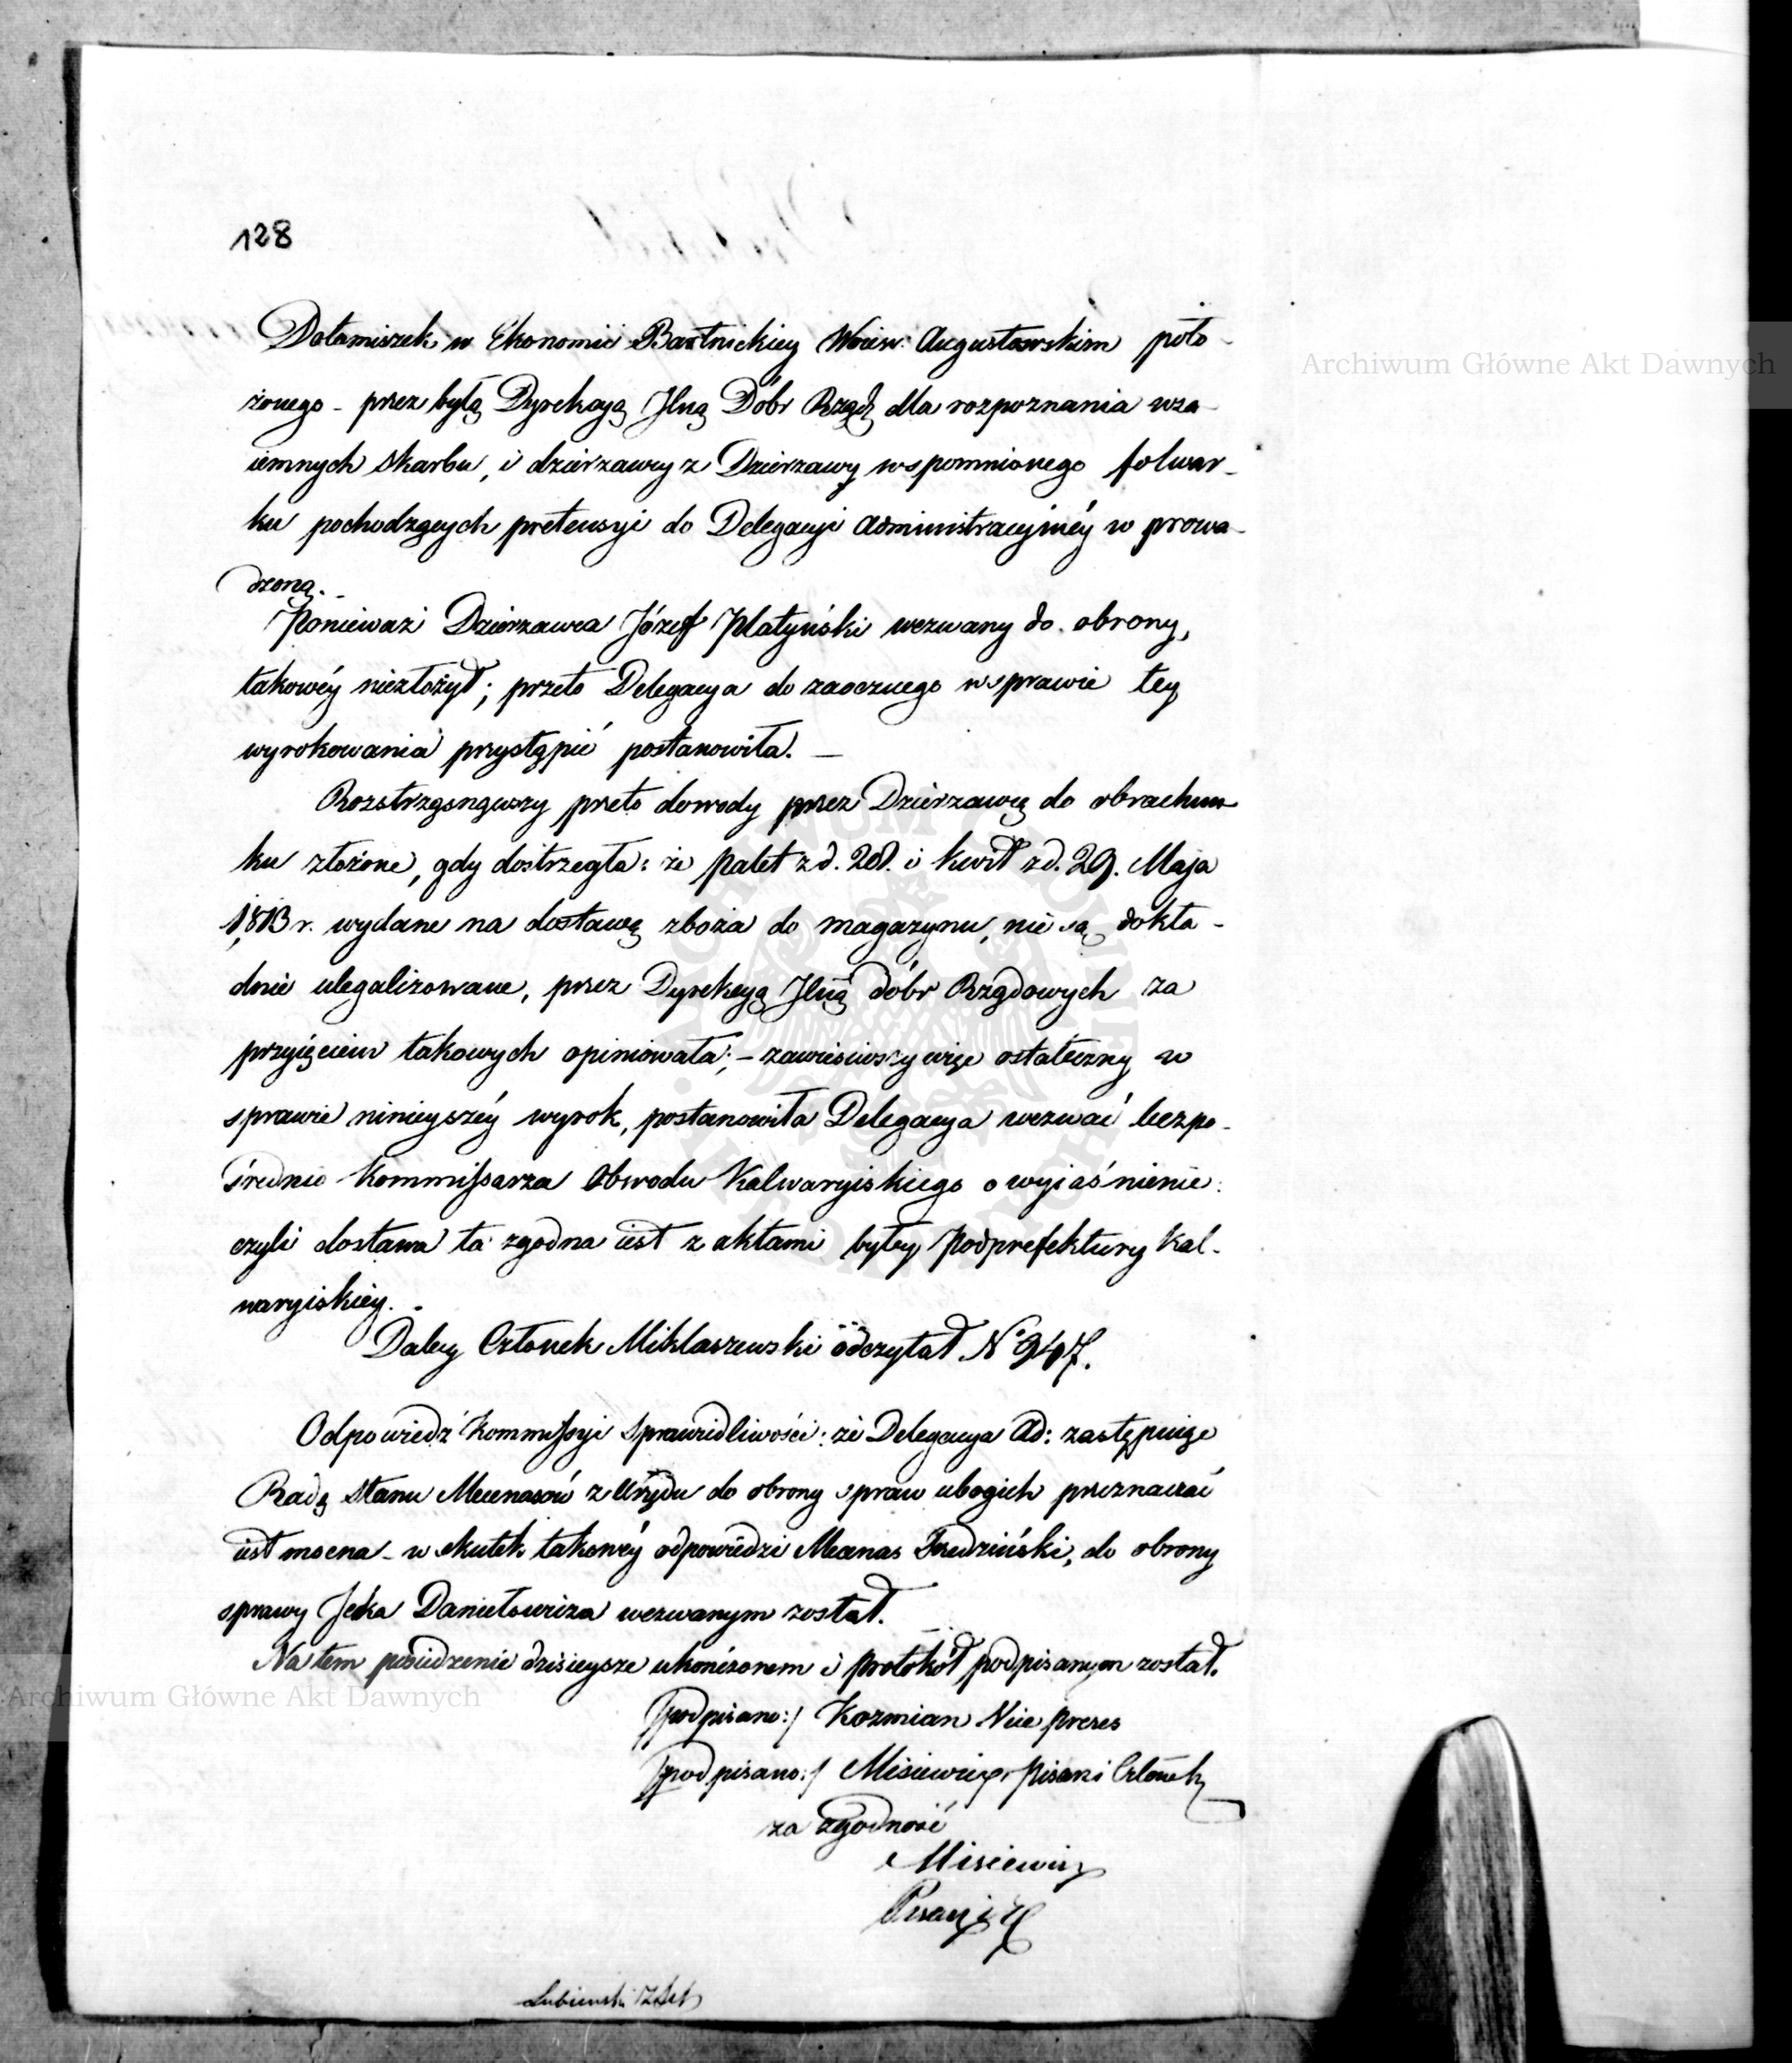 128
Dołamiszek w Ekonomii Bartnickiey Woiew: Augustowskim poło-
żonego - przez byłą Dyrekcyą Jlną Dóbr Rząd: dla rozpoznania wza-
iemnych skarbu, i dzierżawcy z Dzierżawy wspomnionego folwar-
ku pochodzących pretensyi do Delegacyi Administracyjnéy wprowa-
dzoną. -
Ponieważ Dzierżawca Józeff Płatyński wezwany do obrony,
takowéy niezłożył; przeto Delegacya do zaocznego w sprawie tey
wyrokowania przystąpić postanowiła. —
Rozstrząsnąwszy przeto dowody przez Dzierżawcę do obrachun-
ku złożone, gdy dostrzegła: że palet z d. 28. i kwit z d. 29. Maja
1813 r. wydane na dostawę zboża do magazynu, nie są dokła-
dnie ulegalizowane, przez Dyrekcyą Jlną dóbr Rządowych za
przyięciem takowych opiniowała; - zawiesiwszy więc ostateczny w
sprawie ninieyszéy wyrok, postanowiła Delegacya wezwać bezpo-
średnio Kommissarza Obwodu Kalwaryiskiego o wyiaśnienie:
czyli dostawa ta zgodna iest z aktami byłey Podprefektury Kal-
waryiskiey. -
Daley Członek Miklaszewski odczytał N° 947.
Odpowiedź Kommissyi Sprawiedliwości: że Delegacya Ad: zastępuiąc
Radę Stanu Mecenasów z Urzędu do obrony spraw ubogich przeznaczać
iest mocna - w skutek takowéy odpowiedzi Mecenas do obrony
sprawy Jcka Daniełowicza wezwanym został.
Na tem posiedzenie dzisieysze ukończonem i protokół podpisanym został.
/podpisano:/ Kozmian Vice prezes
/podpisano:/ Misiewicz Pisarz i Członek
za zgodność
Misiewicz
Pisarz i
Lubieński
Archiwum Główne Akt Dawnych
Archiwum Główne Akt Dawnych